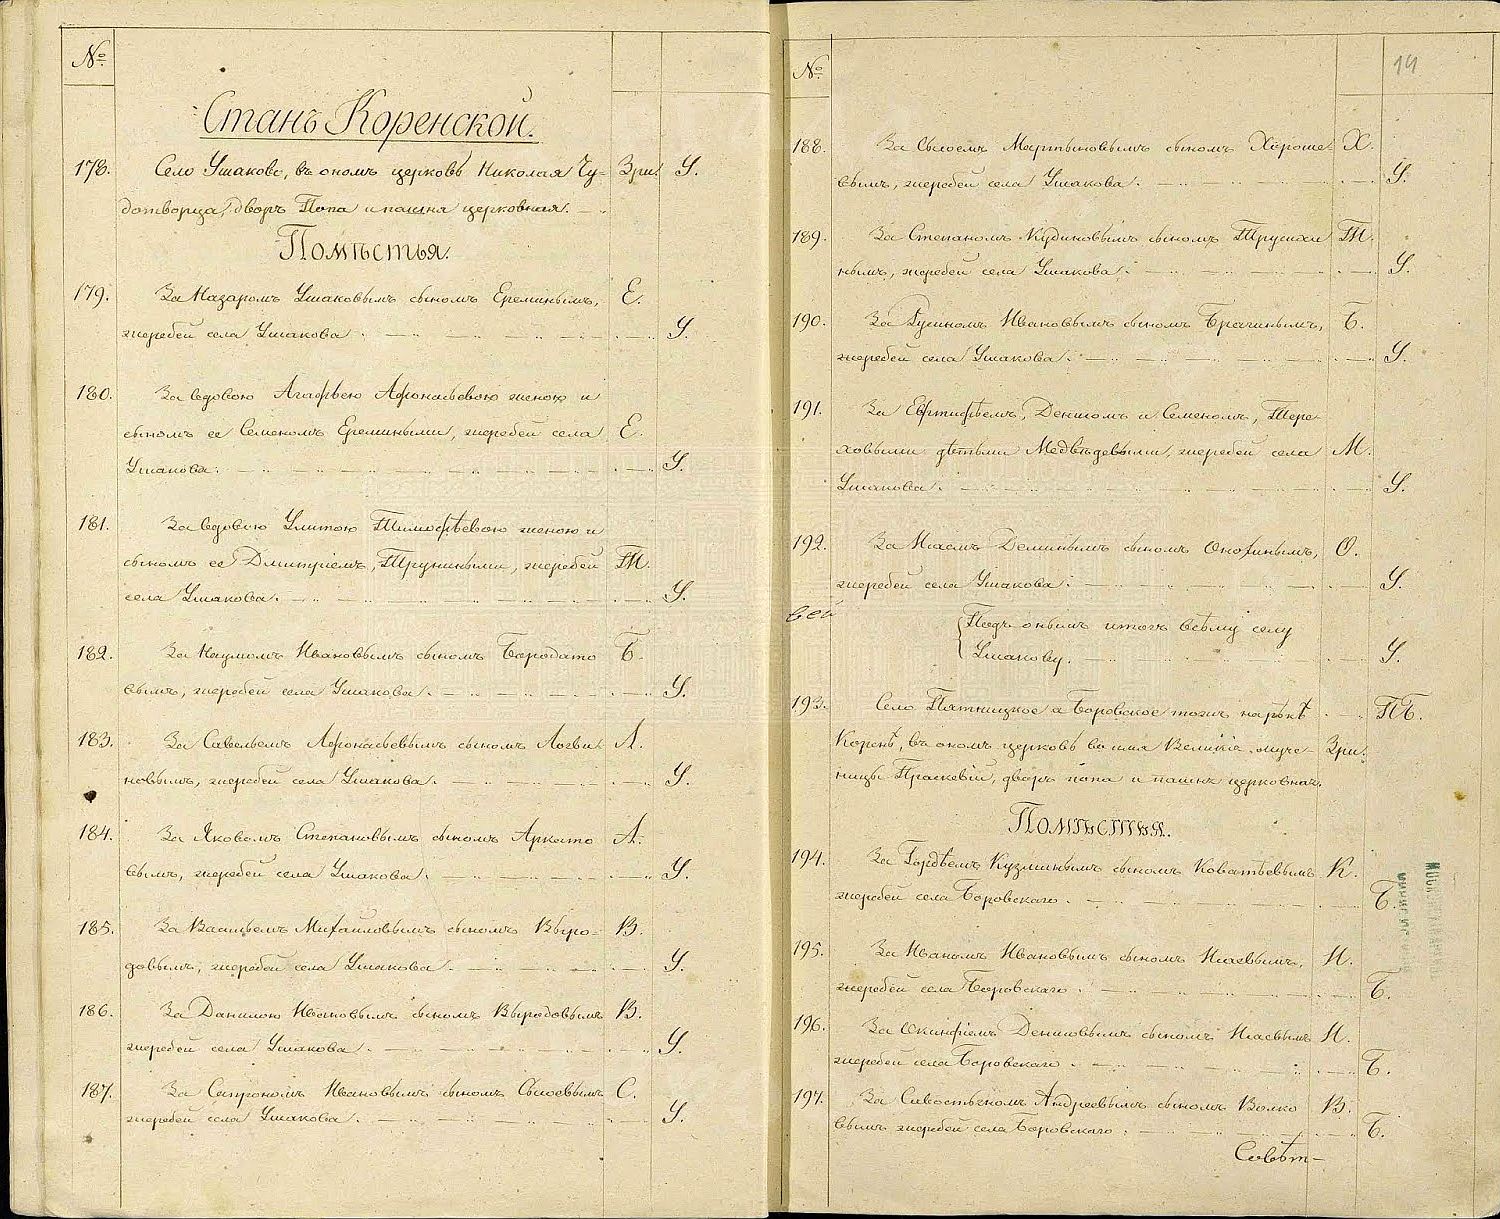 №
Станъ Коренской.
178. Село Ушаково, въ ономъ церковь Николая Чу- Зри. У.
дотворца, дворъ Попа и пашня церковная.
Помѣстья.
179. За Назаромъ Ушаковымъ сыномъ Ереминымъ, Е.
жеребей села Ушакова. У.
180. За вдовою Агафьею Афонасьевою женою и
сыномъ ее Семеномъ Еремиными, жеребей села Е.
Ушакова. У.
181. За вдовою Улитою Тимофѣевою женою и
сыномъ ее Дмитріемъ, Труниными, жеребей Т.
села Ушакова. У.
182. За Наумомъ Ивановымъ сыномъ Бородато Б.
вымъ, жеребей села Ушакова. У.
183. За Савельемъ Афонасьевымъ сыномъ Логви Л.
новымъ, жеребей села Ушакова. У.
184. За Яковомъ Степановымъ сыномъ Аркато А.
вымъ, жеребей села Ушакова. У.
185. За Васильемъ Михайловымъ сыномъ Выро- В.
довымъ, жеребей села Ушакова. У.
186. За Данилою Ивановымъ сыномъ Выродовымъ В.
жеребей села Ушакова. У.
187. За Сапрономъ Ивановымъ сыномъ Сысоевымъ С.
жеребей села Ушакова. У.
№ 14
188. За Сысоемъ Мартыновымъ сыномъ Хороше Х.
вымъ, жеребей села Ушакова. У.
189. За Степаномъ Кудиновымъ сыномъ Трусихи Т.
нымъ, жеребей села Ушакова. У.
190. За Русиномъ Ивановымъ сыномъ Брагинымъ, Б.
жеребей села Ушакова. У.
191. За Евтифѣемъ, Денисомъ и Семеномъ, Тере
ховыми дѣтьми Медвѣдевыми, жеребей села М.
Ушакова. У.
192. За Исаемъ Деминымъ сыномъ Онохинымъ, О.
жеребей села Ушакова. У.
вей Подъ онымъ итогъ всѣму селу
Ушакову. У.
193. Село Пятницкое а Боровское тожъ на рѣкѣ П.Б.
Коренѣ, въ ономъ церковь во имя Великія муче- Зри.
ницы Праскевіи, дворъ попа и пашня церковная.
Помѣстья.
194. За Гордѣемъ Кузминымъ сыномъ Коватѣевымъ К.
жеребей села Боровскаго. Б.
195. За Иваномъ Ивановымъ сыномъ Исаевымъ, И.
жеребей села Боровскаго. Б.
196. За Окинфіемъ Денисовымъ сыномъ Исаевымъ И.
жеребей села Боровскаго. Б.
197. За Савостьяномъ Андреевымъ сыномъ Волко В.
вымъ жеребей села Боровскаго. Б.
Совѣт-